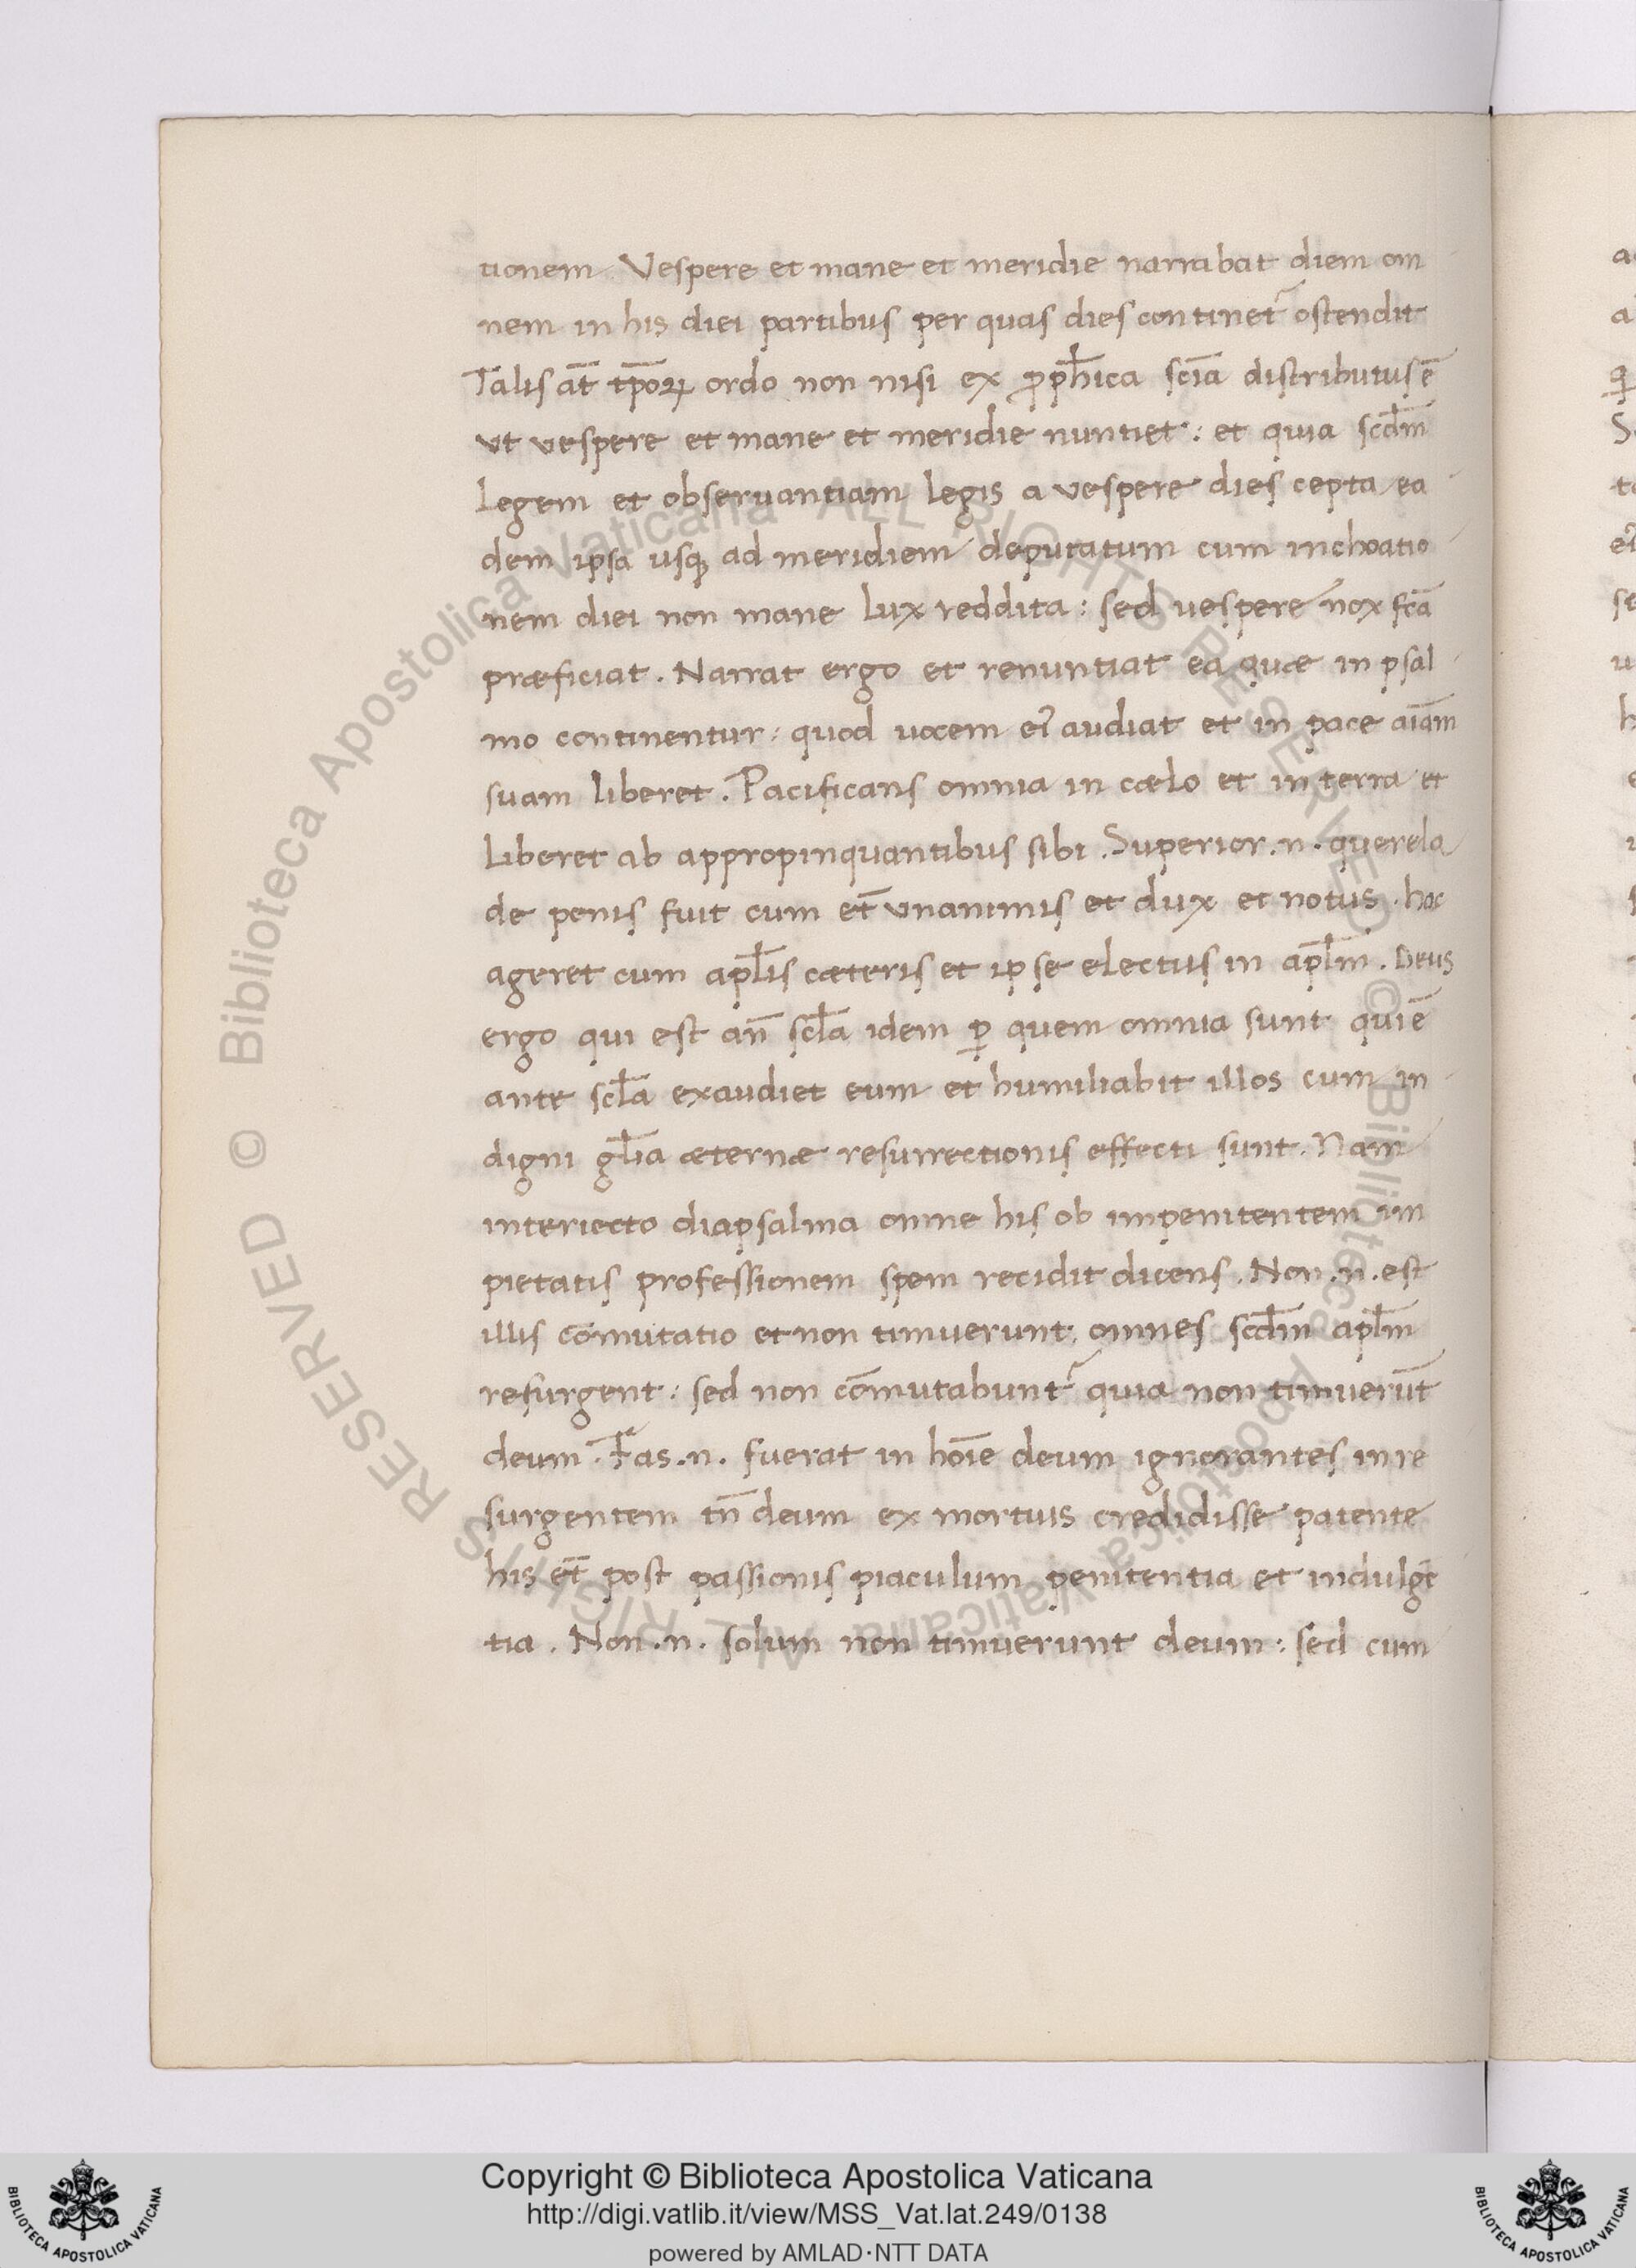 tionem. Vespere et mane et meridie narrabat diem om
nem in his diei partibus per quas dies continet᷑ ostendit
Talis at̄ tp̄oꝝ ordo non nisi ex ꝓph̄ica sciā distributus ē
ut vespere et mane et meridie nuntiet: et quia scd̄m
Legem et obseruantiam legis a vespere dies cepta ea
dem ipsa usqꝫ ad meridiem deputatum cum inchoatio
nem diei non mane lux reddita: sed uespere nox fcā
præficiat. Narrat ergo et renuntiat ea quæ in psal
mo continentur: quod uocem ei᷑ audiat et in pace aīam
suam liberet. Pacificans omnia in cælo et in terra et
Liberet ab appropinquantibus sibi. Superior .n. querela
de penis fuit cum et̄ unanimis et dux et notus hæc
ageret cum apl̄is cæteris et ipse electus in apl̄m. Deus
ergo qui est an̄ scl̄a idem ꝑ quem omnia sunt qui ē
ante scl̄a exaudiet eum et humiliabit illos cum in
digni gl̄ia æternæ resurrectionis effecti sunt. Nam
interiecto diapsalma omne his ob impenitentem im
pietatis professionem spem recidit dicens. Non .n. est
illis com̄utatio et non timuerunt. omnes scd̄m apl̄m
resurgent: sed non com̄utabunt᷑ quia non timuerūt
deum. Fas .n. fuerat in hoīe deum ignorantes in re
surgentem tn̄ deum ex mortuis credidisse patente
his et̄ post passionis piaculum penitentia et indulgē
tia. Non .n. solum non timuerunt deum: sed cum
Copyright © Biblioteca Apostolica Vaticana
http://digi.vatlib.it/view/MSS_Vat.lat.249/0138
powered by AMLAD·NTT DATA
BIBLIOTECA APOSTOLICA VATICANA
BIBLIOTECA APOSTOLICA VATICANA
© Biblioteca Apostolica Vaticana ALL RIGHTS RESERVED
© Biblioteca Apostolica Vaticana ALL RIGHTS RESERVED